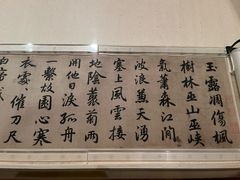 玉露凋傷楓
樹林巫山巫峽
氣蕭森江間
波浪兼天湧
塞上風雲接
地陰叢菊兩
開他日淚孤舟
一繫故園心寒
衣處々催刀尺
白帝城